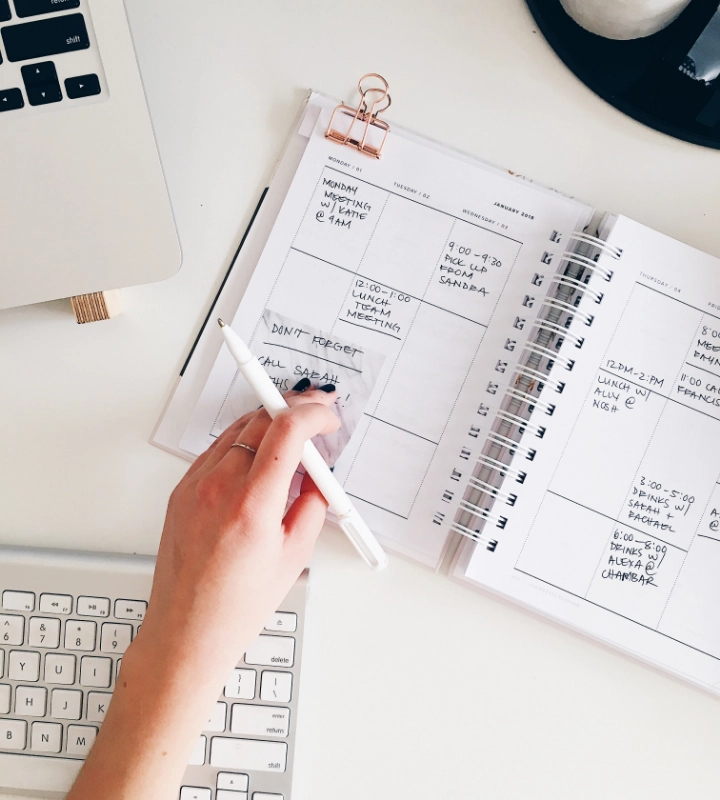 shift
MONDAY / 01
TUESDAY / 02
JANUARY 2018
WEDNESDAY / 03
MONDAY
MEETING
W/ KATIE
@ 9AM
9:00-9:30
PICK UP
FROM
SANDRA
12:00-1:00
LUNCH
TEAM
MEETING
DON'T FORGET
CALL SARAH
THURSDAY / 04
12PM-2:PM
LUNCH W/
ALLY @
NOSH
3:00-5:00
DRINKS W/
SARAH +
RACHAEL
6:00-8:00
DRINKS W/
ALEXA @
CHAMBAR
11:00
^
6
&
7
*
8
(
9
delete
Y
U
I
}
{
|
\
H
J
K
enter
return
B
N
M
shift